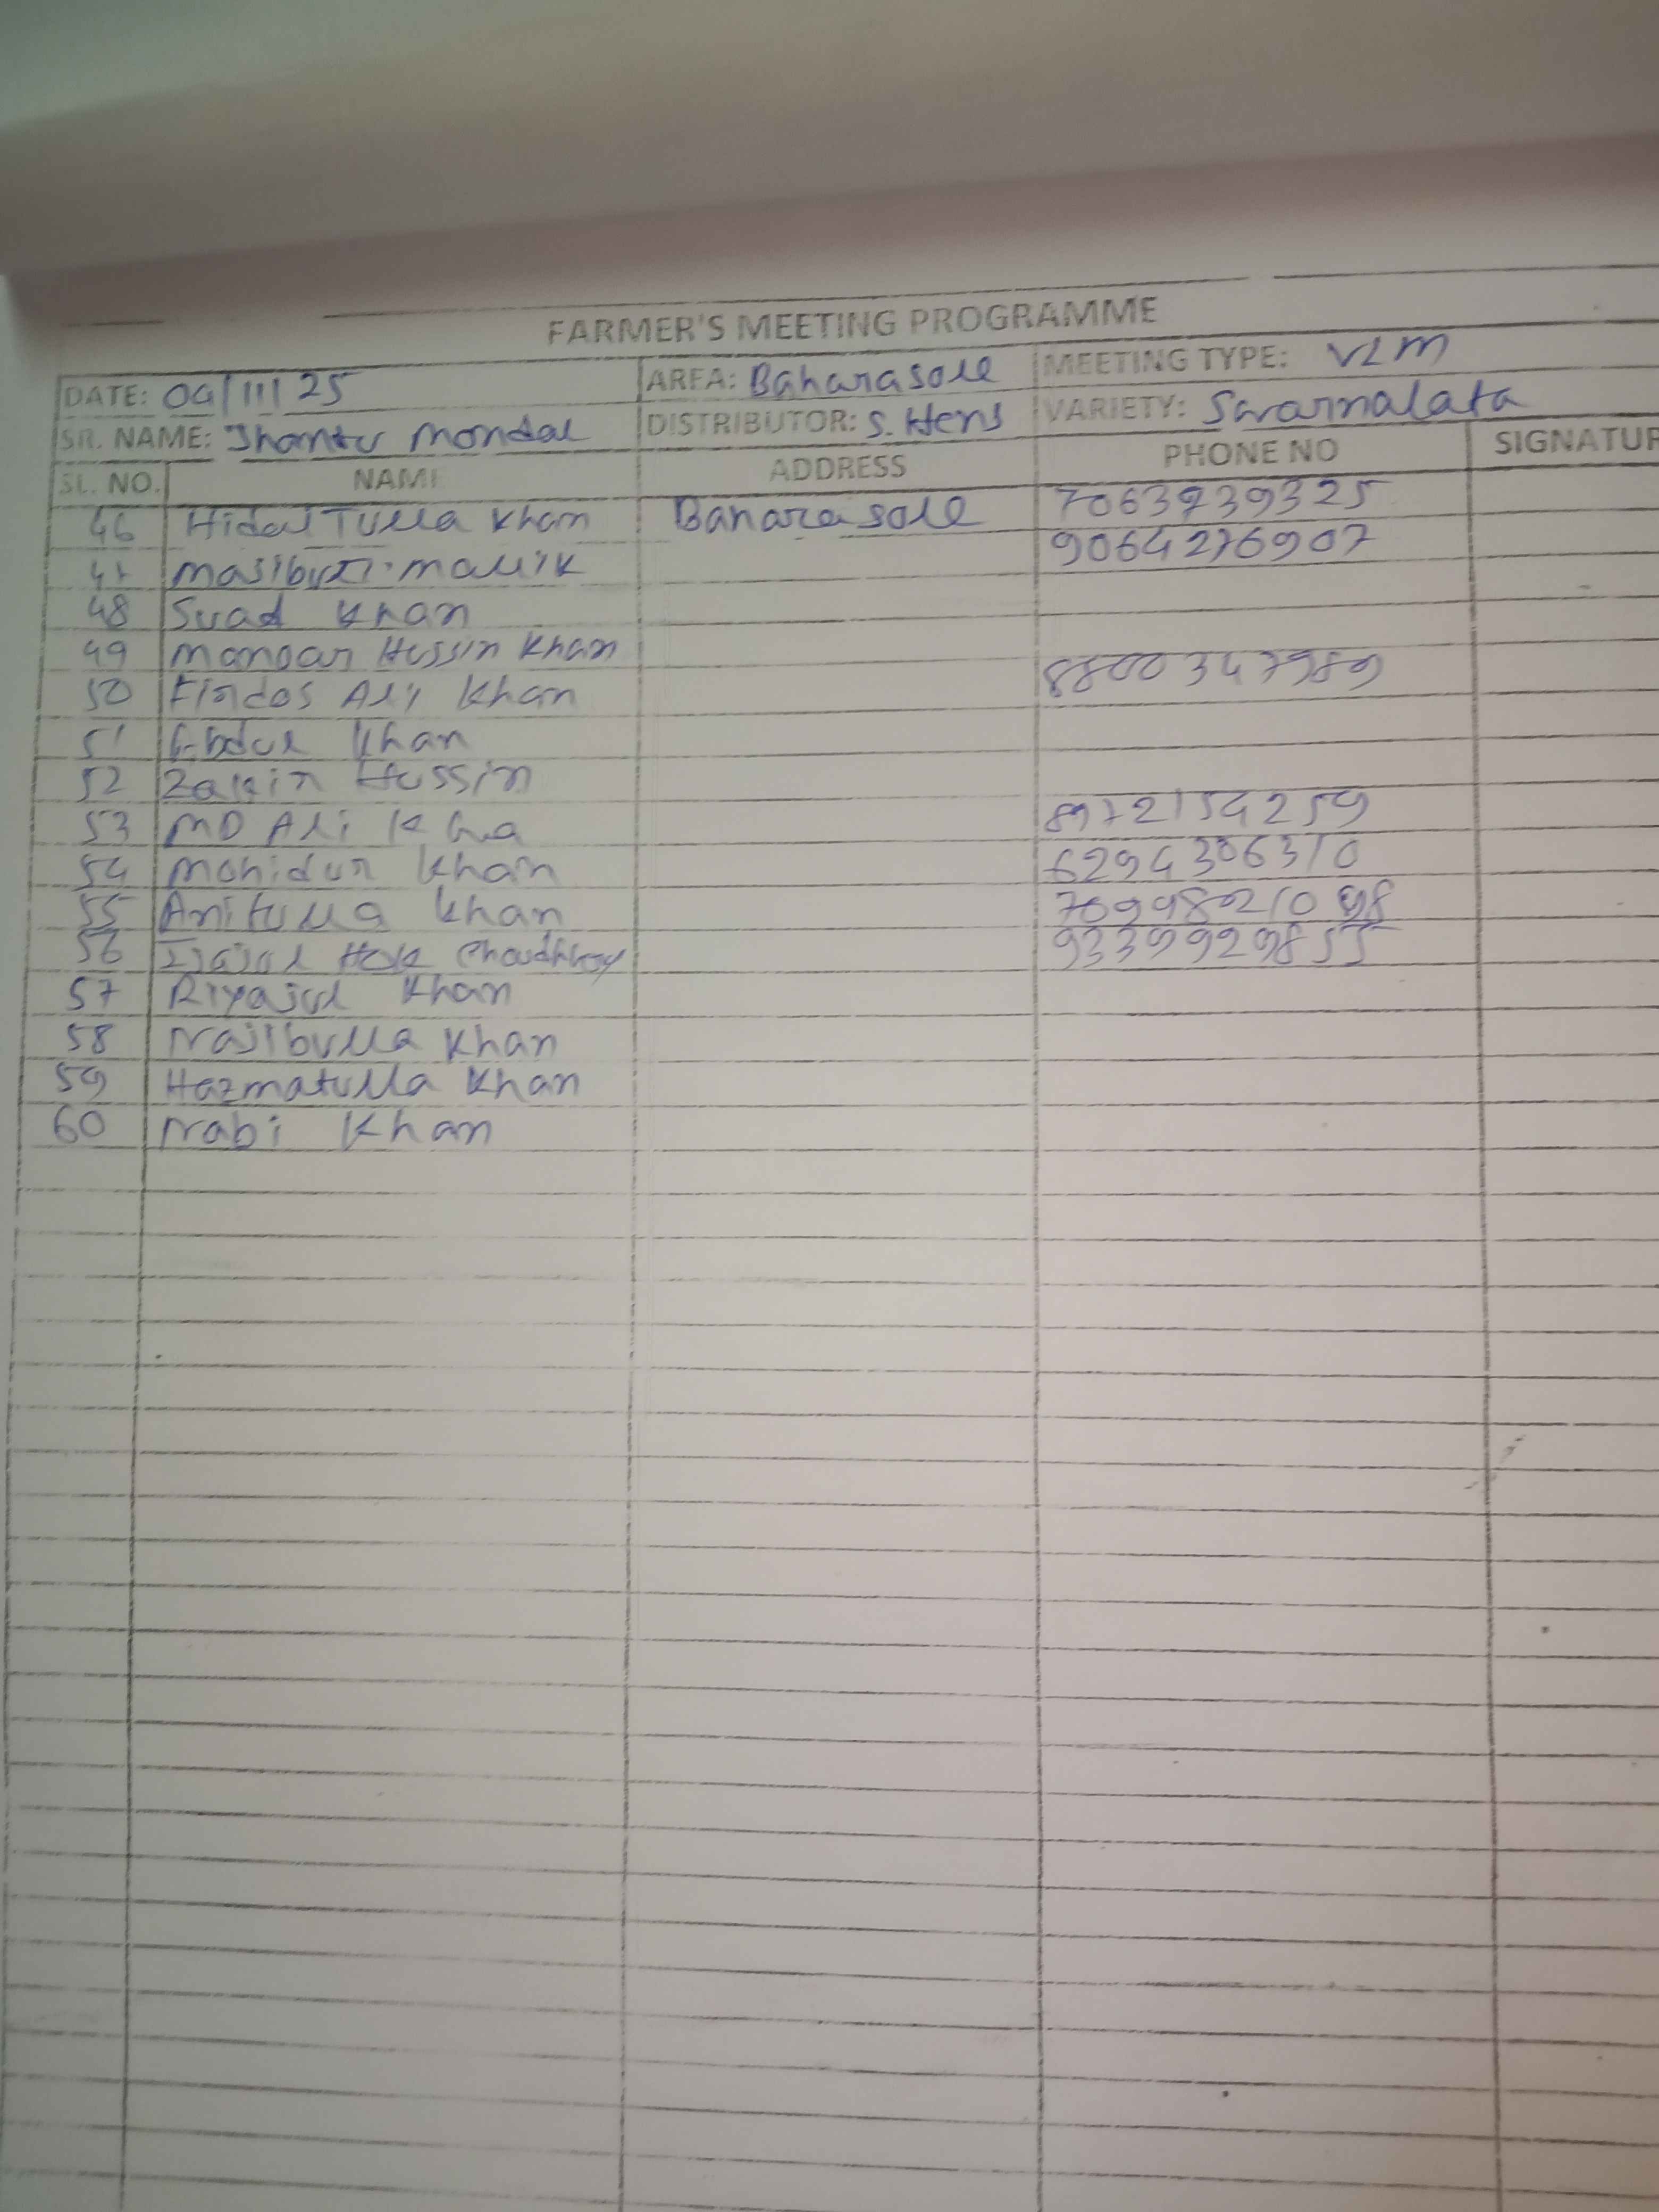 FARMER'S MEETING PROGRAMME
DATE: 04/11/25 AREA: Baharasole MEETING TYPE: VLM
SR. NAME: Jhantu Mondal DISTRIBUTOR: S. Hens VARIETY: Swarnalata
SL. NO. NAME ADDRESS PHONE NO SIGNATUR
46 Hidai Tulla Khan Baharasole 7063939325
47 Mallik 9064276907
48 Suad Khan
49 Hussin Khan
50 Firdos Ali Khan 8800347989
51 Abdul Khan
52 Hussin
53 MD Ali 8972154259
54 Mohidur Khan 6294306310
55 Khan
56 Choudhury 9339929855
57 Riyajul Khan
58 Najibulla Khan
59 Hazmatulla Khan
60 Nabi Khan